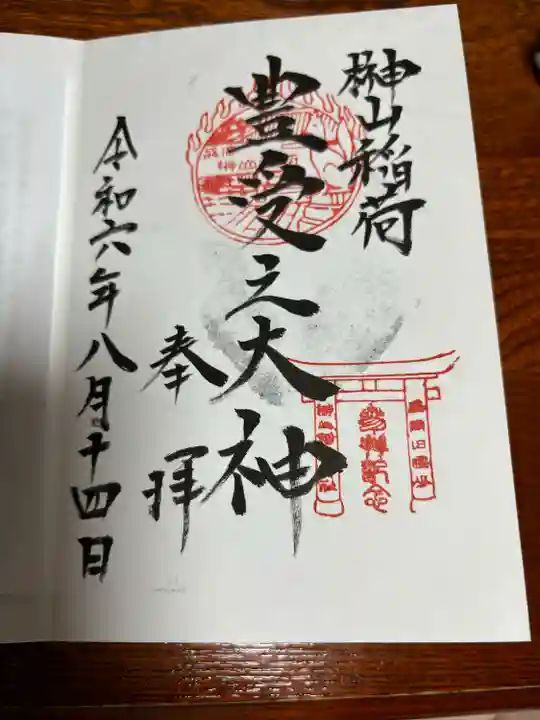 榊山稲荷
豊受之大神
奉拝
令和六年八月十四日
参拝記念